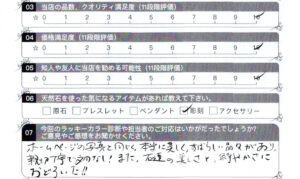 03 当店の品数、クオリティ満足度（11段階評価）
☆ 0 1 2 3 4 5 6 7 8 9 10
04 価格満足度（11段階評価）
☆ 0 1 2 3 4 5 6 7 8 9 10
05 知人や友人に当店を勧める可能性（11段階評価）
☆ 0 1 2 3 4 5 6 7 8 9 10
06 天然石を使った気になるアイテムがあれば教えて下さい。
□原石 □ブレスレット □ペンダント ☑彫刻 □アクセサリー
07 今回のラッキーカラー診断や担当者のご対応はいかがだったでしょうか？
ご意見やご感想をお聞かせください。
ホームページの写真と同じく、本当に美しく、すばらしい品々があり、
また、石達の美しさと、鮮やかさに
おどろいた!!